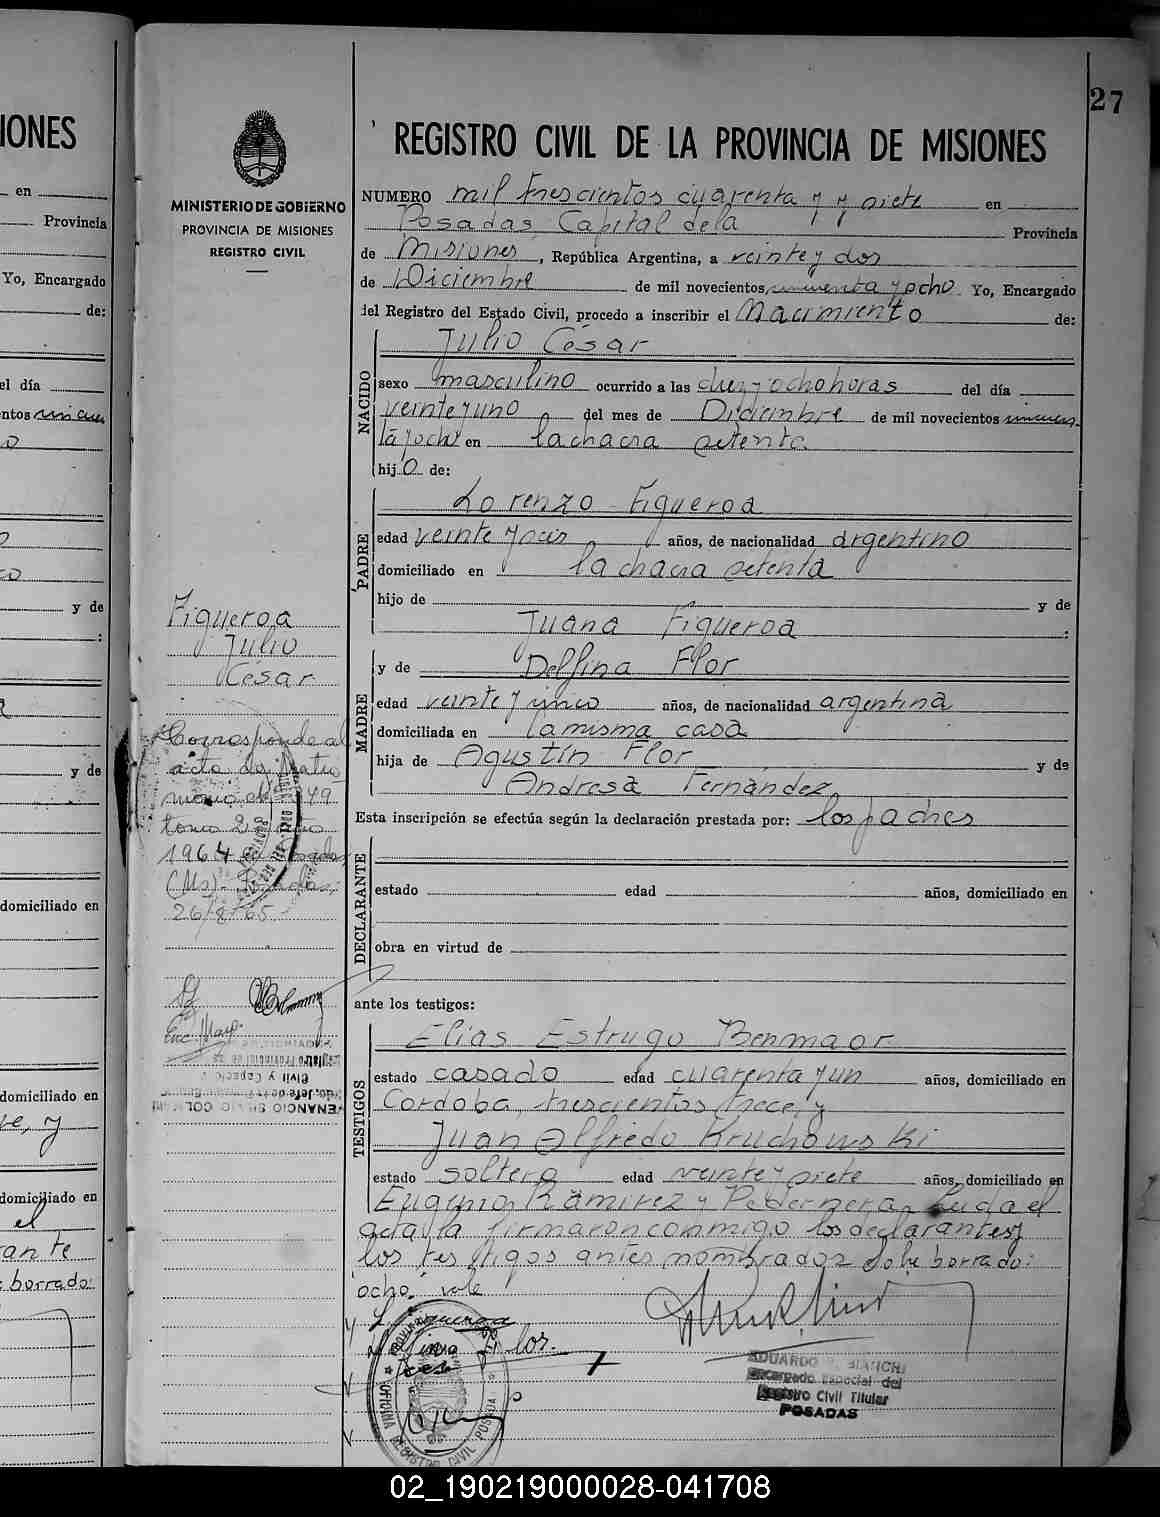 27
REGISTRO CIVIL DE LA PROVINCIA DE MISIONES
MINISTERIO DE GOBIERNO
PROVINCIA DE MISIONES
REGISTRO CIVIL
NUMERO mil trescientos cuarenta y y siete en
Posadas Capital de la Provincia
de Misiones, República Argentina, a veinte y dos
de Diciembre de mil novecientos cincuenta y ocho Yo, Encargado
del Registro del Estado Civil, procedo a inscribir el Nacimiento de:
NACIDO
Julio César
sexo masculino ocurrido a las diez y ocho horas del día
veinte y uno del mes de Diciembre de mil novecientos cincuen
ta y ocho en la chacra setenta
hijo de:
PADRE
Lorenzo Figueroa
edad veinte y años, de nacionalidad argentino
domiciliado en la chacra setenta
hijo de y de
Juana Figueroa :
MADRE
y de Delfina Flor
edad veinte y cinco años, de nacionalidad argentina
domiciliada en la misma casa
hija de Agustín Flor y de
Andresa Fernández
Esta inscripción se efectúa según la declaración prestada por: los padres
DECLARANTE
estado edad años, domiciliado en
obra en virtud de
ante los testigos:
TESTIGOS
Elias Estrugo Benmaor
estado casado edad cuarenta y un años, domiciliado en
Córdoba, trescientos trece, y
Juan Alfredo Kruchowski
estado soltero edad veinte y siete años, domiciliado en
Eugenio Ramirez y Pedernera Leida el
acta la firmaron conmigo los declarantes y
los testigos antes nombrados sobre borrado:
"ocho" vale
Figueroa
Julio
César
Corresponde al
acta de Matri
monio Nº 49
tomo 2
1964
(Ms). Posadas,
26/8/65
Enc. Mayo.
EDUARDO BIANCHI
Encargado Especial del
Registro Civil Titular
POSADAS
OFICINA REGISTRO CIVIL POSADAS
IONES
en
Provincia
Yo, Encargado
de:
el día
ntos cincuen
o
y de
:
y de
domiciliado en
domiciliado en
y
domiciliado en
el
ante
borrado:
02_190219000028-041708